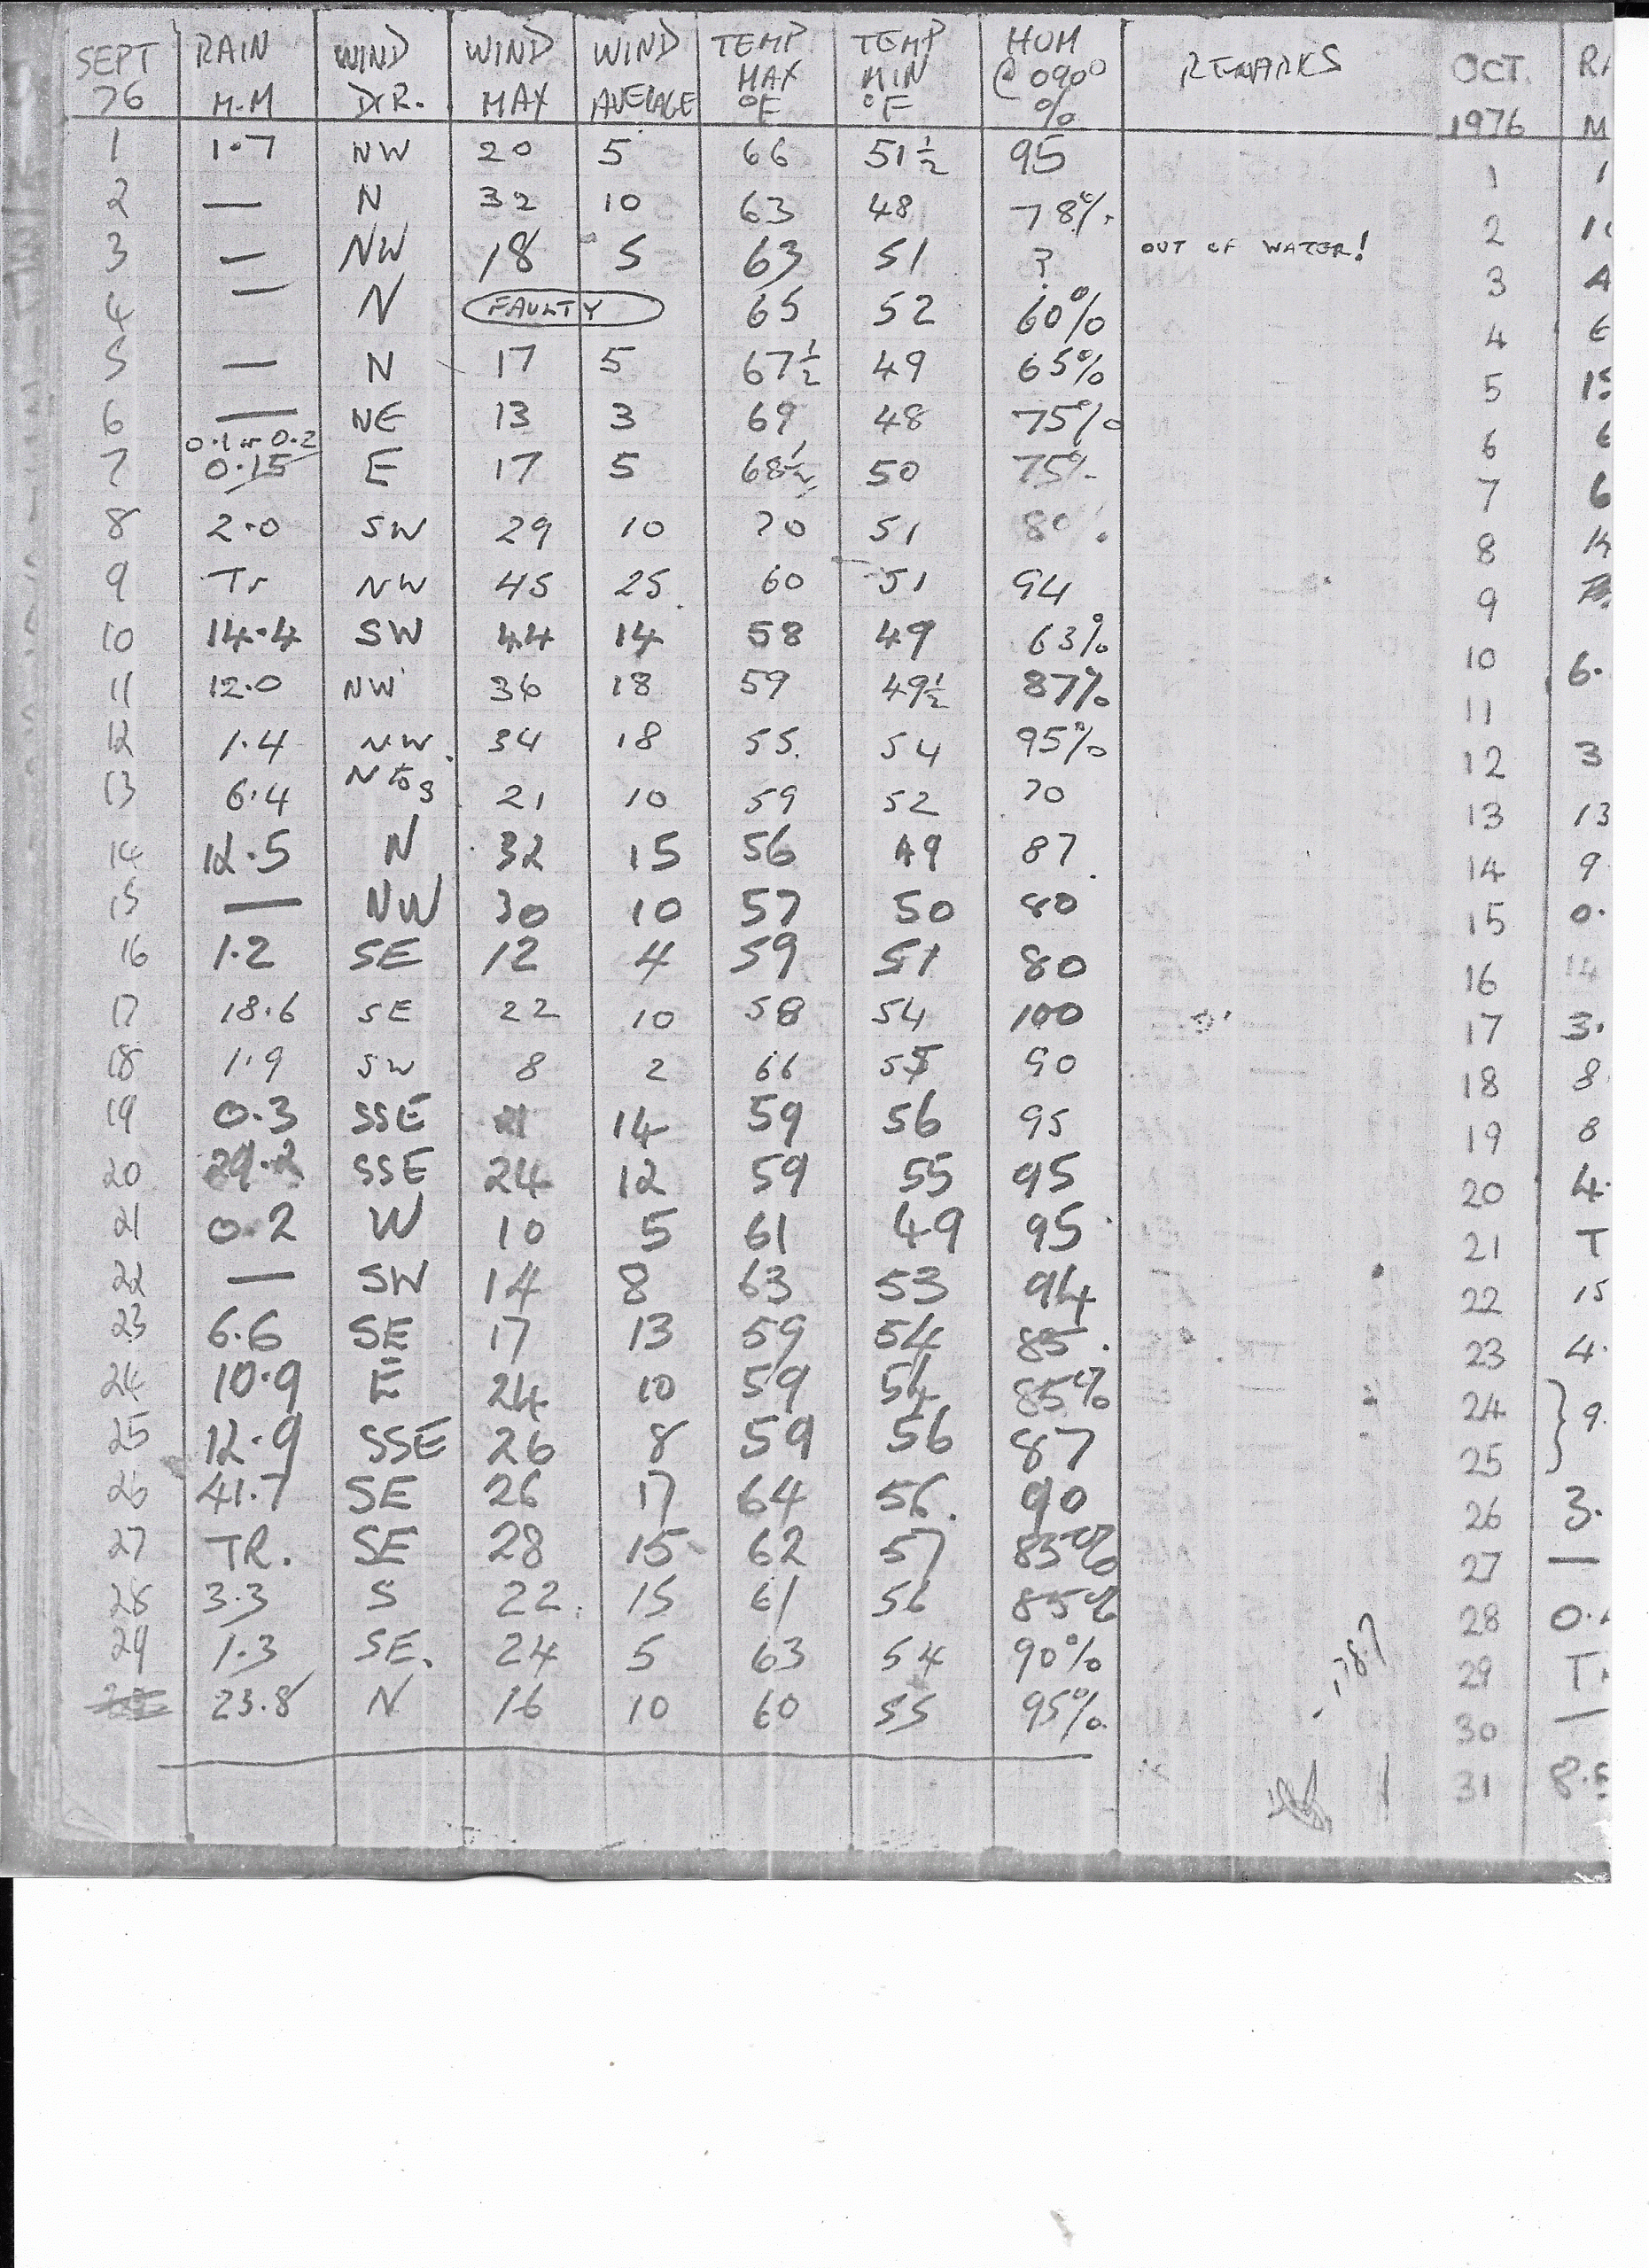 SEPT 76 RAIN M.M WIND DIR. WIND MAX WIND AVERAGE TEMP MAX °F TEMP MIN °F HUM @ 0900 % REMARKS OCT. 1976
1 1.7 NW 20 5 66 51½ 95 1
2 — N 32 10 63 48 78% 2
3 — NW 18 5 63 51 ? OUT OF WATER! 3
4 — N FAULTY 65 52 60% 4
5 — N 17 5 67½ 49 65% 5
6 — NE 13 3 69 48 75% 6
0.1 or 0.2
7 0.15 E 17 5 68½ 50 75% 7
8 2.0 SW 29 10 70 51 80 8
9 Tr NW 45 25 60 51 94 9
10 14.4 SW 44 14 58 49 63% 10 6.
11 12.0 NW 36 18 59 49½ 87% 11
12 1.4 NW 34 18 55 54 95% 12 3
13 6.4 N to S 21 10 59 52 70 13 13
14 12.5 N 32 15 56 49 87 14 9
15 — NW 30 10 57 50 80 15 0.
16 1.2 SE 12 4 59 51 80 16 14
17 18.6 SE 22 10 58 54 100 17 3.
18 1.9 SW 8 2 66 55 90 18 8
19 0.3 SSE 14 59 56 95 19 8
20 29.2 SSE 24 12 59 55 95 20 4.
21 0.2 W 10 5 61 49 95 21 T
22 — SW 14 8 63 53 94 22 15
23 6.6 SE 17 13 59 54 85 23 4.
24 10.9 E 24 10 59 54 85% 24 } 9.
25 12.9 SSE 26 8 59 56 87 25
26 41.7 SE 26 17 64 56 90 26 3.
27 TR. SE 28 15 62 57 85% 27 —
28 3.3 S 22 15 61 56 85% 28 0.
29 1.3 SE. 24 5 63 54 90% 29 T
23.8 N 16 10 60 55 95% 30 —
31 8.5